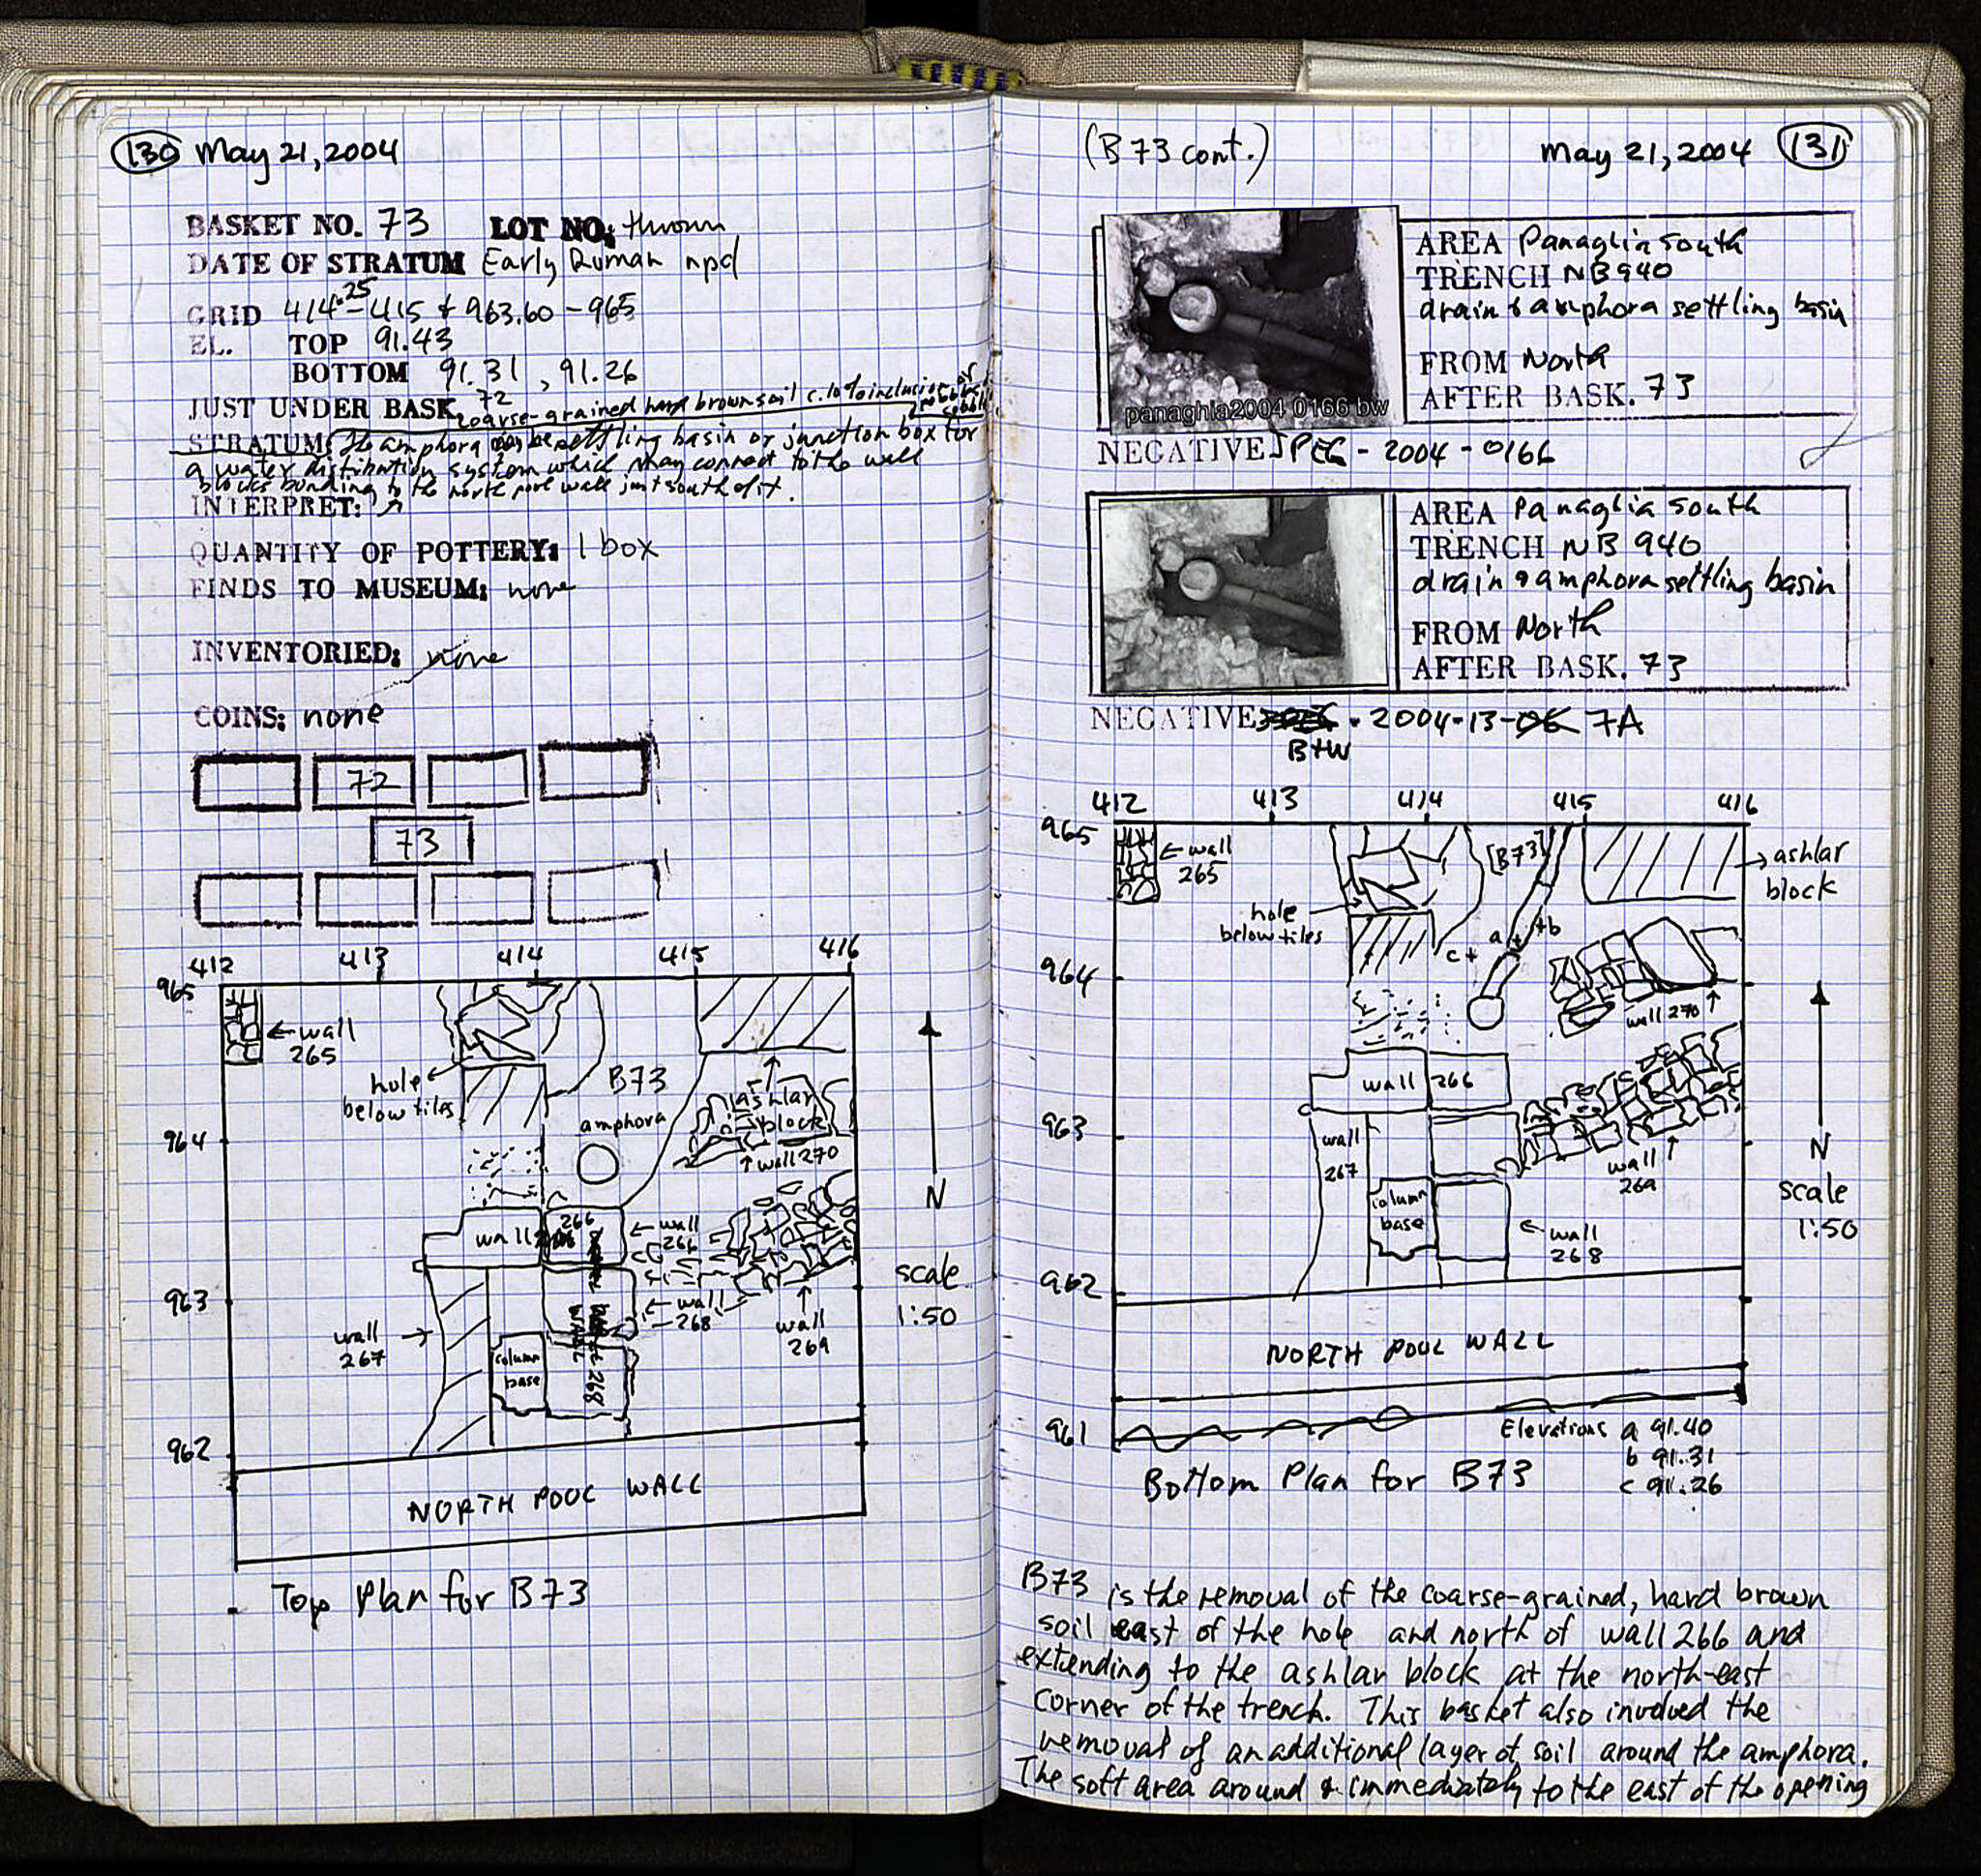 130 May 21, 2004
BASKET NO. 73 LOT NO: thrown
DATE OF STRATUM Early Roman npd
GRID 414.25-415 & 963.60-965
EL. TOP 91.43
BOTTOM 91.31, 91.26
JUST UNDER BASK. 72
coarse-grained hard brown soil c. 10% inclusions of
STRATUM: The amphora may be settling basin or junction box for
a water distribution system which may connect to the wall
blocks bonding to the north pool wall just south of it.
INTERPRET:
QUANTITY OF POTTERY: 1 box
FINDS TO MUSEUM: none
INVENTORIED: none
COINS: none
72
73
412 413 414 415 416
965
← wall
265
hole
below tiles
B73
amphora
ashlar
block
964
↑ wall 270
N
266
wall
← wall
266
scale
1:50
963
← wall
268
wall
269
wall
267
column
base
268
962
NORTH POOL WALL
Top Plan for B73
(B73 cont.) May 21, 2004 131
AREA Panaghia South
TRENCH NB940
drain & amphora settling basin
FROM North
AFTER BASK. 73
panaghia2004 0166 bw
NEGATIVE JPEG-2004-0166
AREA Panaghia South
TRENCH NB 940
drain & amphora settling basin
FROM North
AFTER BASK. 73
NEGATIVE 2004-13-06 7A
B+W
412 413 414 415 416
965
← wall
265
[B73]
→ ashlar
block
hole
below tiles
a+ +b
c+
964
wall 270 ↑
wall 266
963
wall
267
wall
269
N
scale
1:50
column
base
← wall
268
962
NORTH POOL WALL
961
Elevations a 91.40
b 91.31
c 91.26
Bottom Plan for B73
B73 is the removal of the coarse-grained, hard brown
soil east of the hole and north of wall 266 and
extending to the ashlar block at the north-east
corner of the trench. This basket also involved the
removal of an additional layer of soil around the amphora.
The soft area around & immediately to the east of the opening